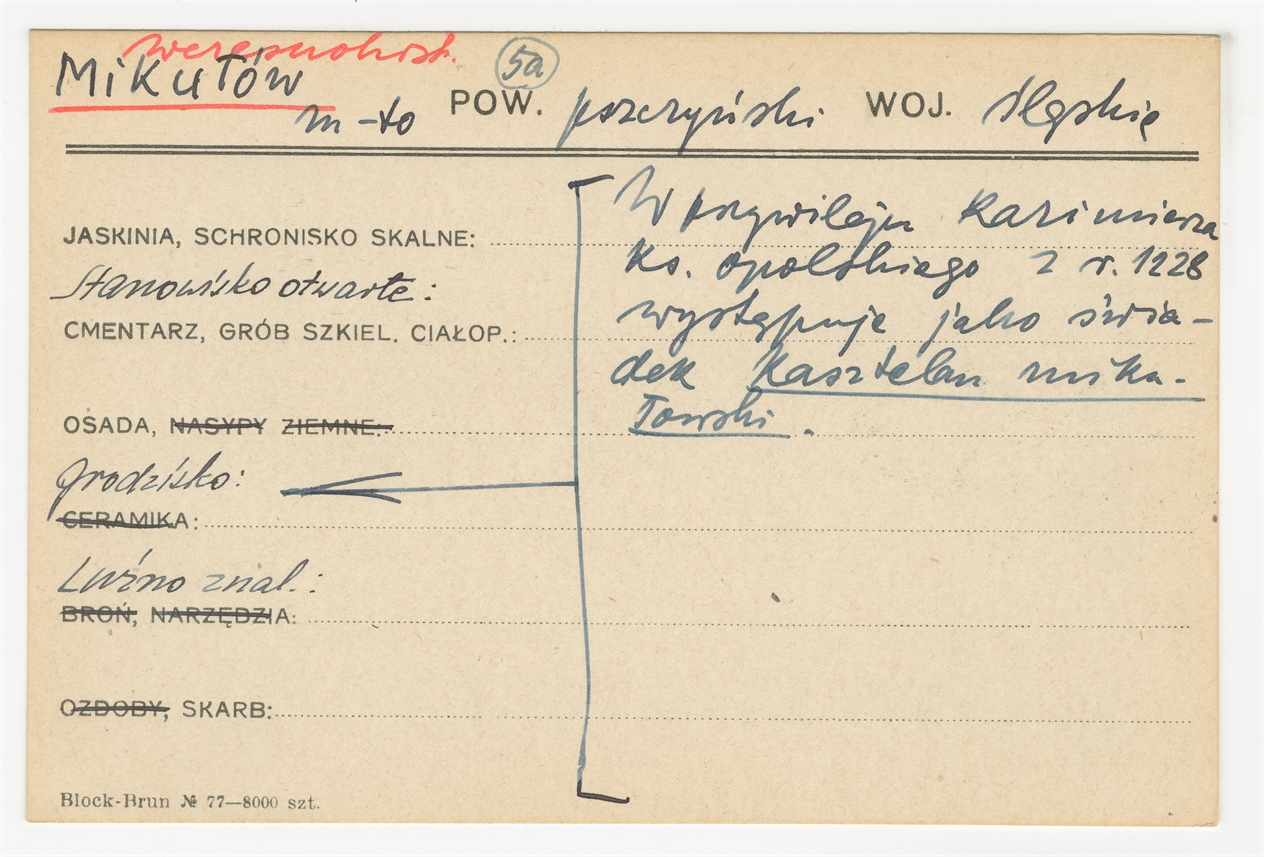 wczesnohist.
Mikułów
5a
m-to POW. pszczyński WOJ. śląskie
JASKINIA, SCHRONISKO SKALNE:
Stanowisko otwarte:
CMENTARZ, GRÓB SZKIEL. CIAŁOP.:
OSADA, NASYPY ZIEMNE:
Grodzisko:
CERAMIKA:
Luźno znal.:
BROŃ, NARZĘDZIA:
OZDOBY, SKARB:
W przywileju Kazimierza
ks. opolskiego z r. 1228
występuje jako świa-
dek Kasztelan miku-
łowski.
Block-Brun № 77—8000 szt.